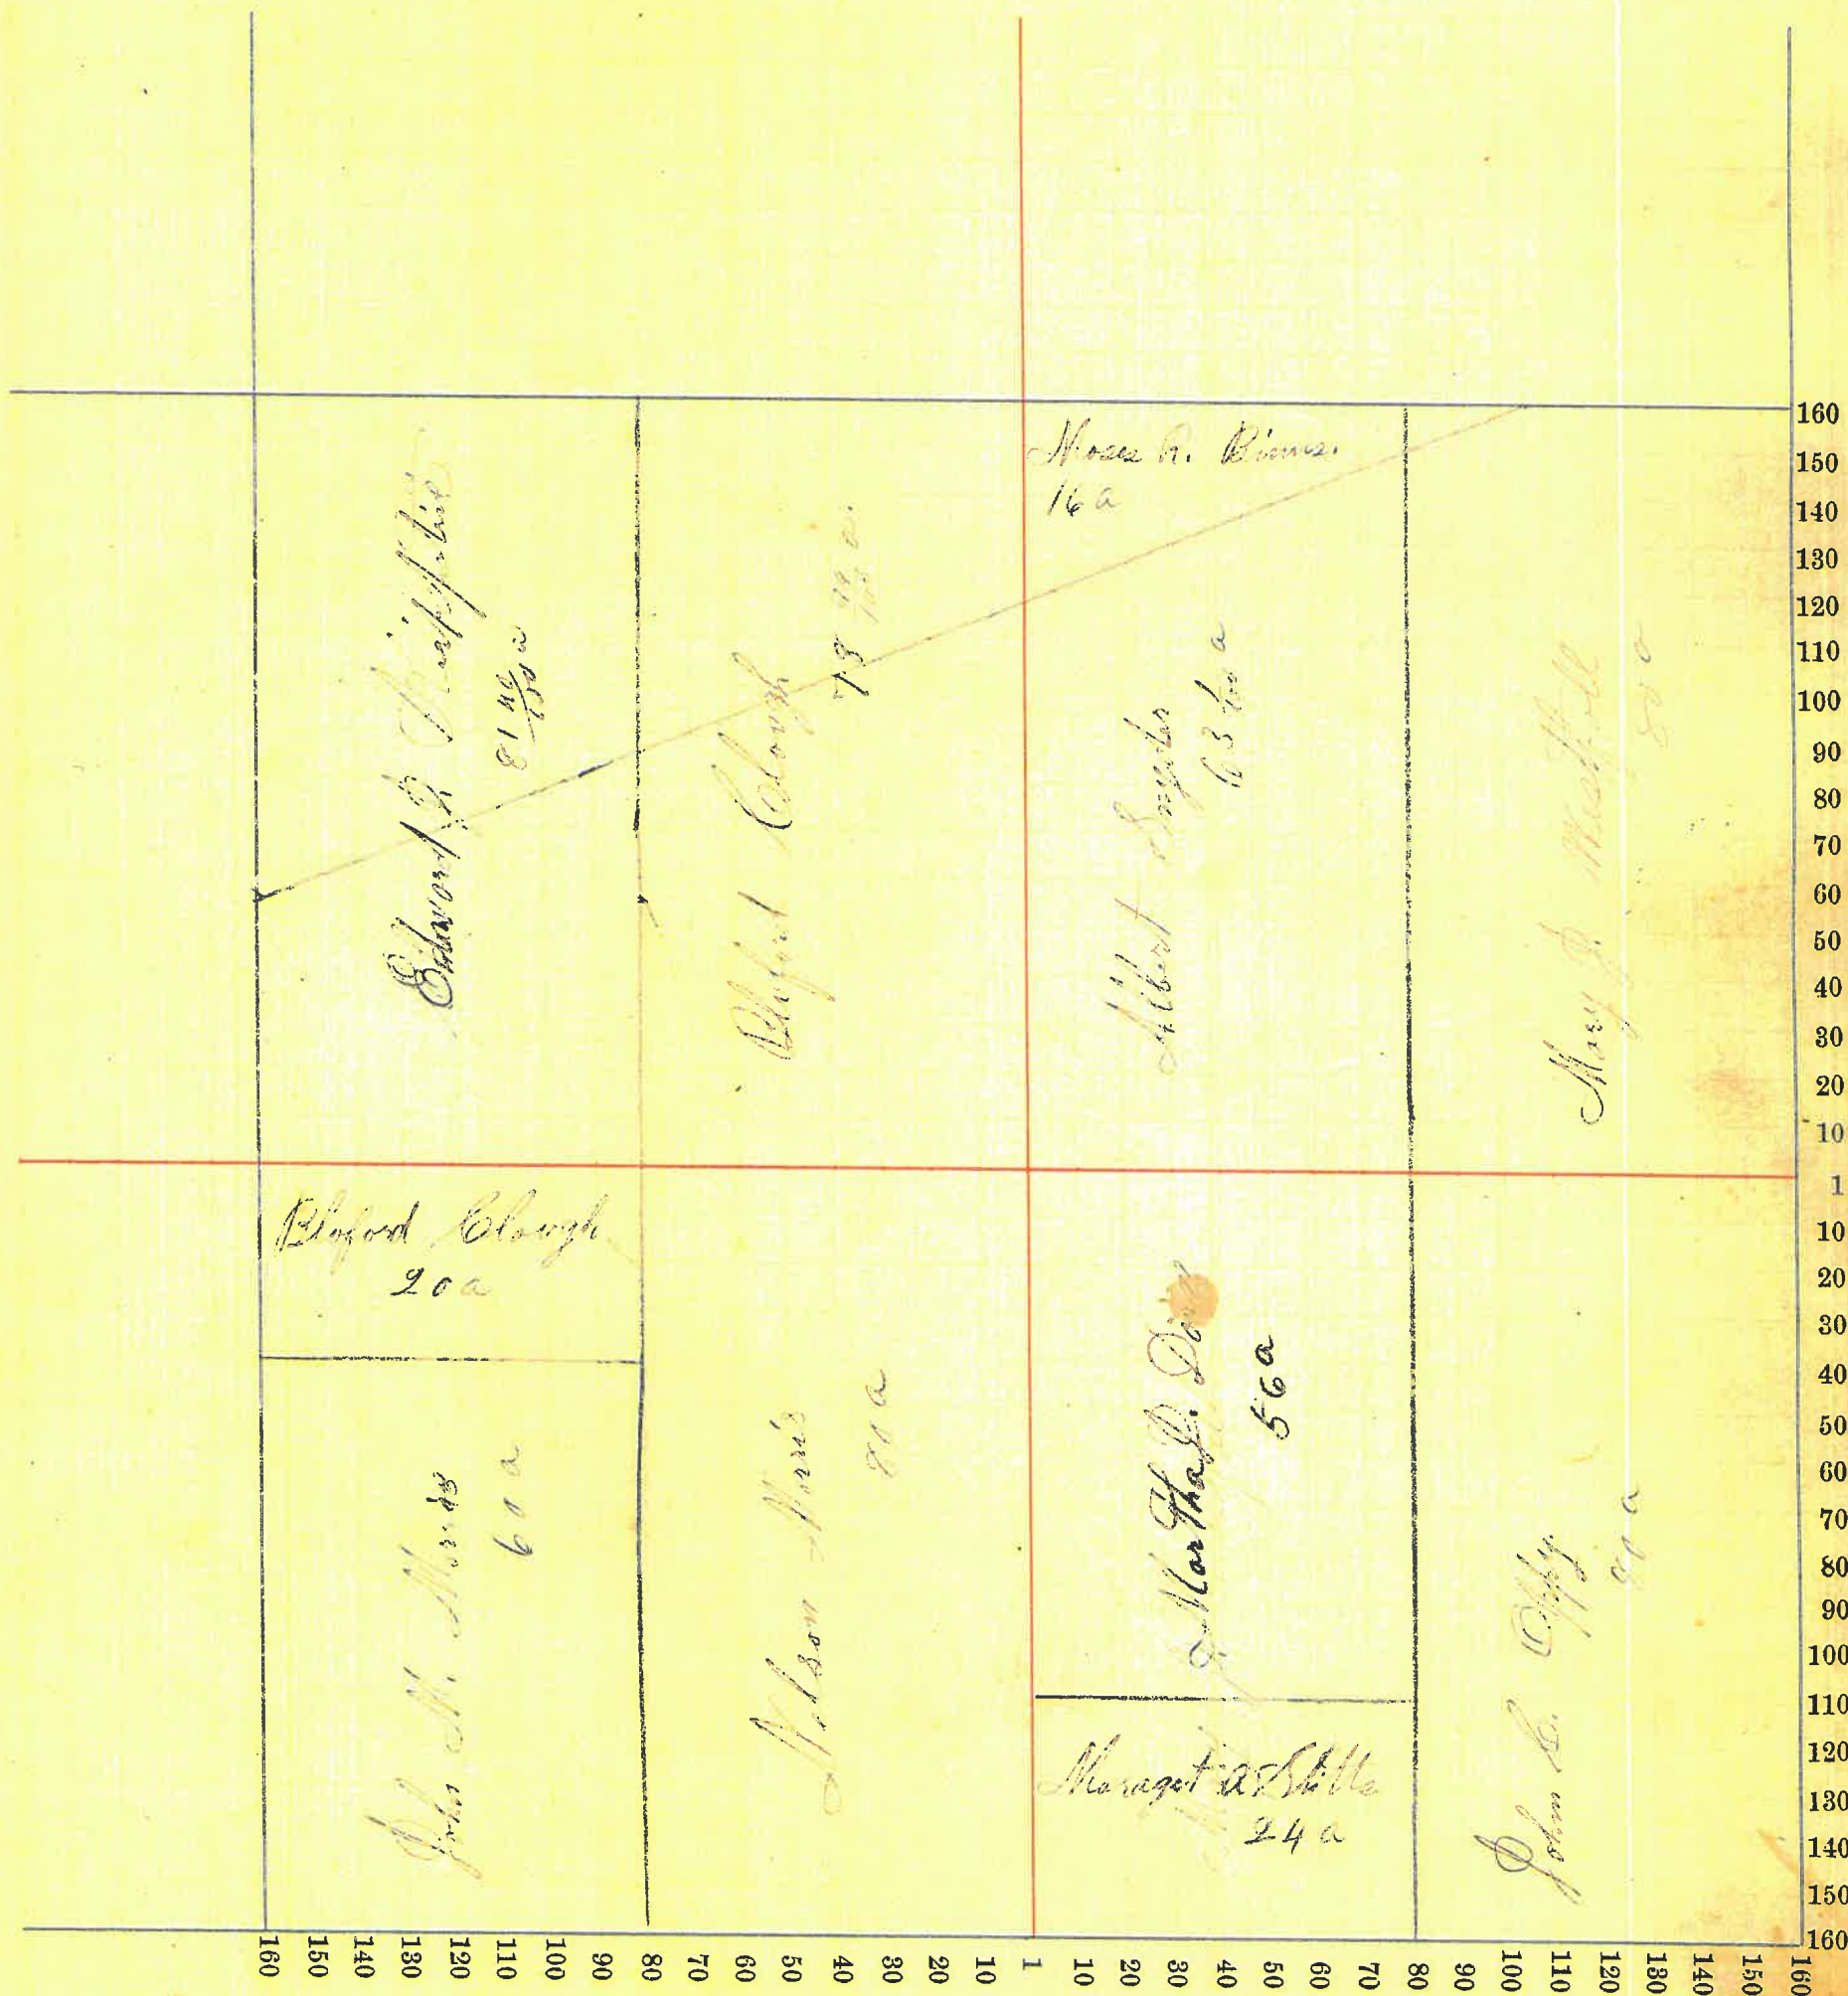 Moses R. Binns.
16 a
Edward
81 40/100 a
Bloford Clough
78
Albert Snyder
63 a
Mary J.
80 a
Bloford Clough
20 a
John N. Morris
60 a
Nelson Morris
80 a
Martha J. Davis
56 a
Maraget a
24 a
John C. Oppy
a
160
150
140
130
120
110
100
90
80
70
60
50
40
30
20
10
1
10
20
30
40
50
60
70
80
90
100
110
120
130
140
150
160
160 150 140 130 120 110 100 90 80 70 60 50 40 30 20 10 1 10 20 30 40 50 60 70 80 90 100 110 120 130 140 150 160